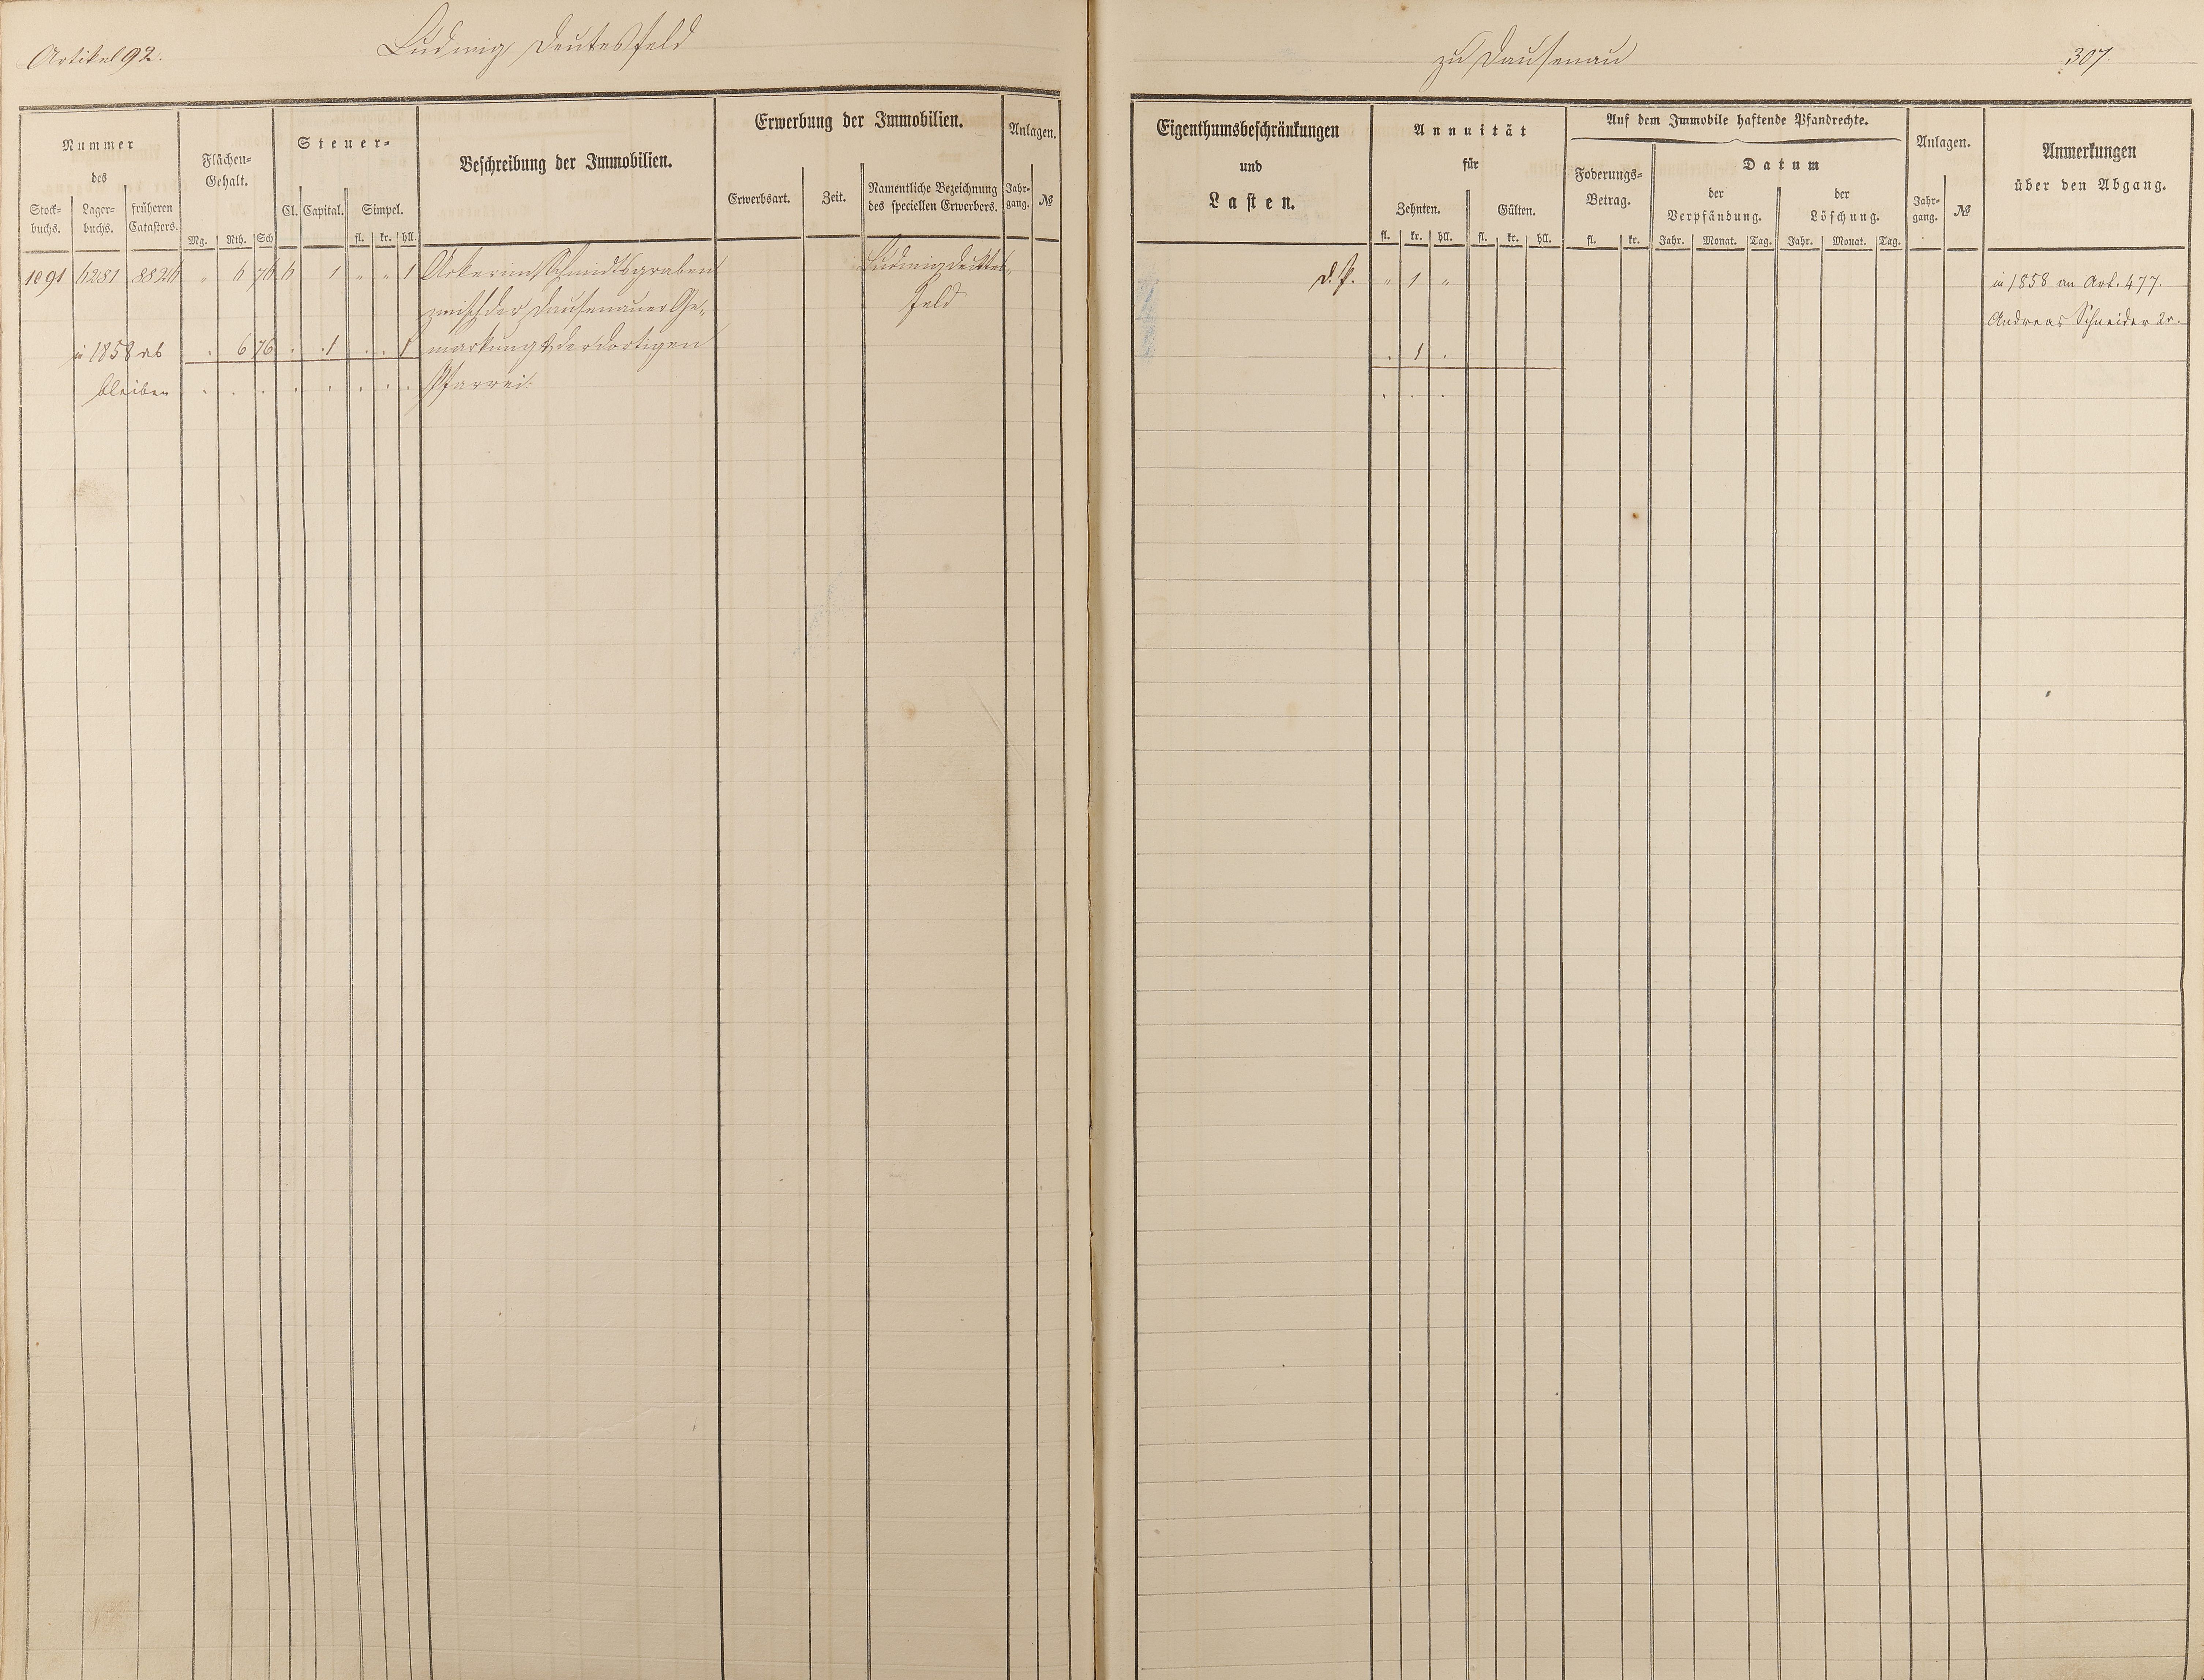 Artikel 92.
Ludwig Deutesfeld
Nummer
des
Stock-
buchs.
Lager-
buchs.
früheren
Catasters.
Flächen-
Gehalt.
Mg. Rth. Sch
Steuer-
Cl. Capital. Simpel.
fl. kr. hll.
Beschreibung der Immobilien.
Erwerbung der Immobilien.
Erwerbsart. Zeit.
Namentliche Bezeichnung
des speciellen Erwerbers.
Anlagen.
Jahr-
gang.
№
6281 8826 " 6 76 6 1 " " 1 Acker im Schmidtsgraben
zwisch der Dausenauer Ge-
in 1858 ab . 6 76 . . 1 . . 1 markung & der dortigen
bleiben . . . . . . . . Pfarrei.
Ludwig
feld
zu Dausenau
307.
Eigenthumsbeschränkungen
und
Lasten.
Annuität
für
Zehnten. Gülten.
fl. kr. hll. fl. kr. hll.
Auf dem Immobile haftende Pfandrechte.
Foderungs-
Betrag.
fl. kr.
Datum
der
Verpfändung.
der
Löschung.
Jahr. Monat. Tag. Jahr. Monat. Tag.
Anlagen.
Jahr-
gang.
№
Anmerkungen
über den Abgang.
" 1 "
. 1 .
. . .
in 1858 an Art. 477.
Andreas Schneider 2r.